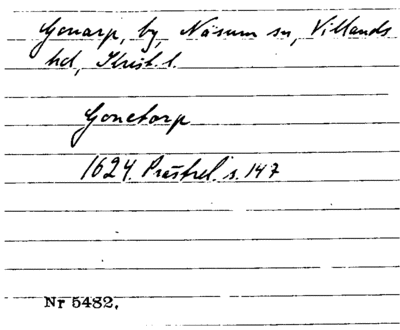 Gonarp, by, Näsum sn, Villands
hd, Krist. l.
Gonetorp
1624. Prästrel. s. 147
Nr 5482.